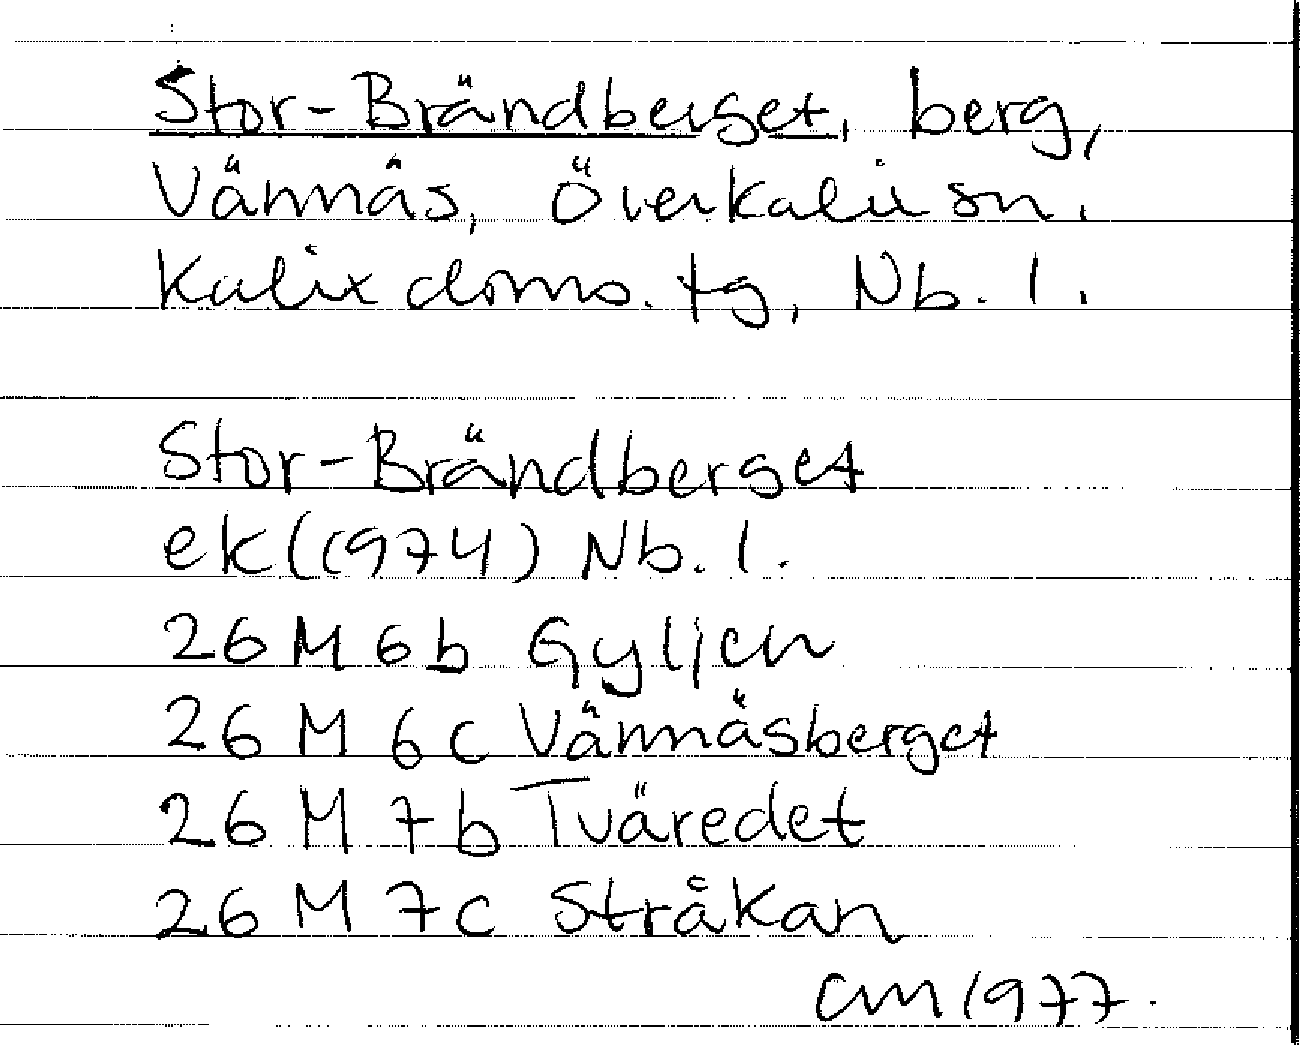 Stor-Brändberget, berg,
Vännäs, Överkalix sn.
Kalix doms. tg, Nb. l.
Stor-Brändberget
ek (1974) Nb. l.
26 M 6 b Gyljen
26 M 6 c Vännäsberget
26 M 7 b Tväredet
26 M 7 c Stråkan
CM 1977.